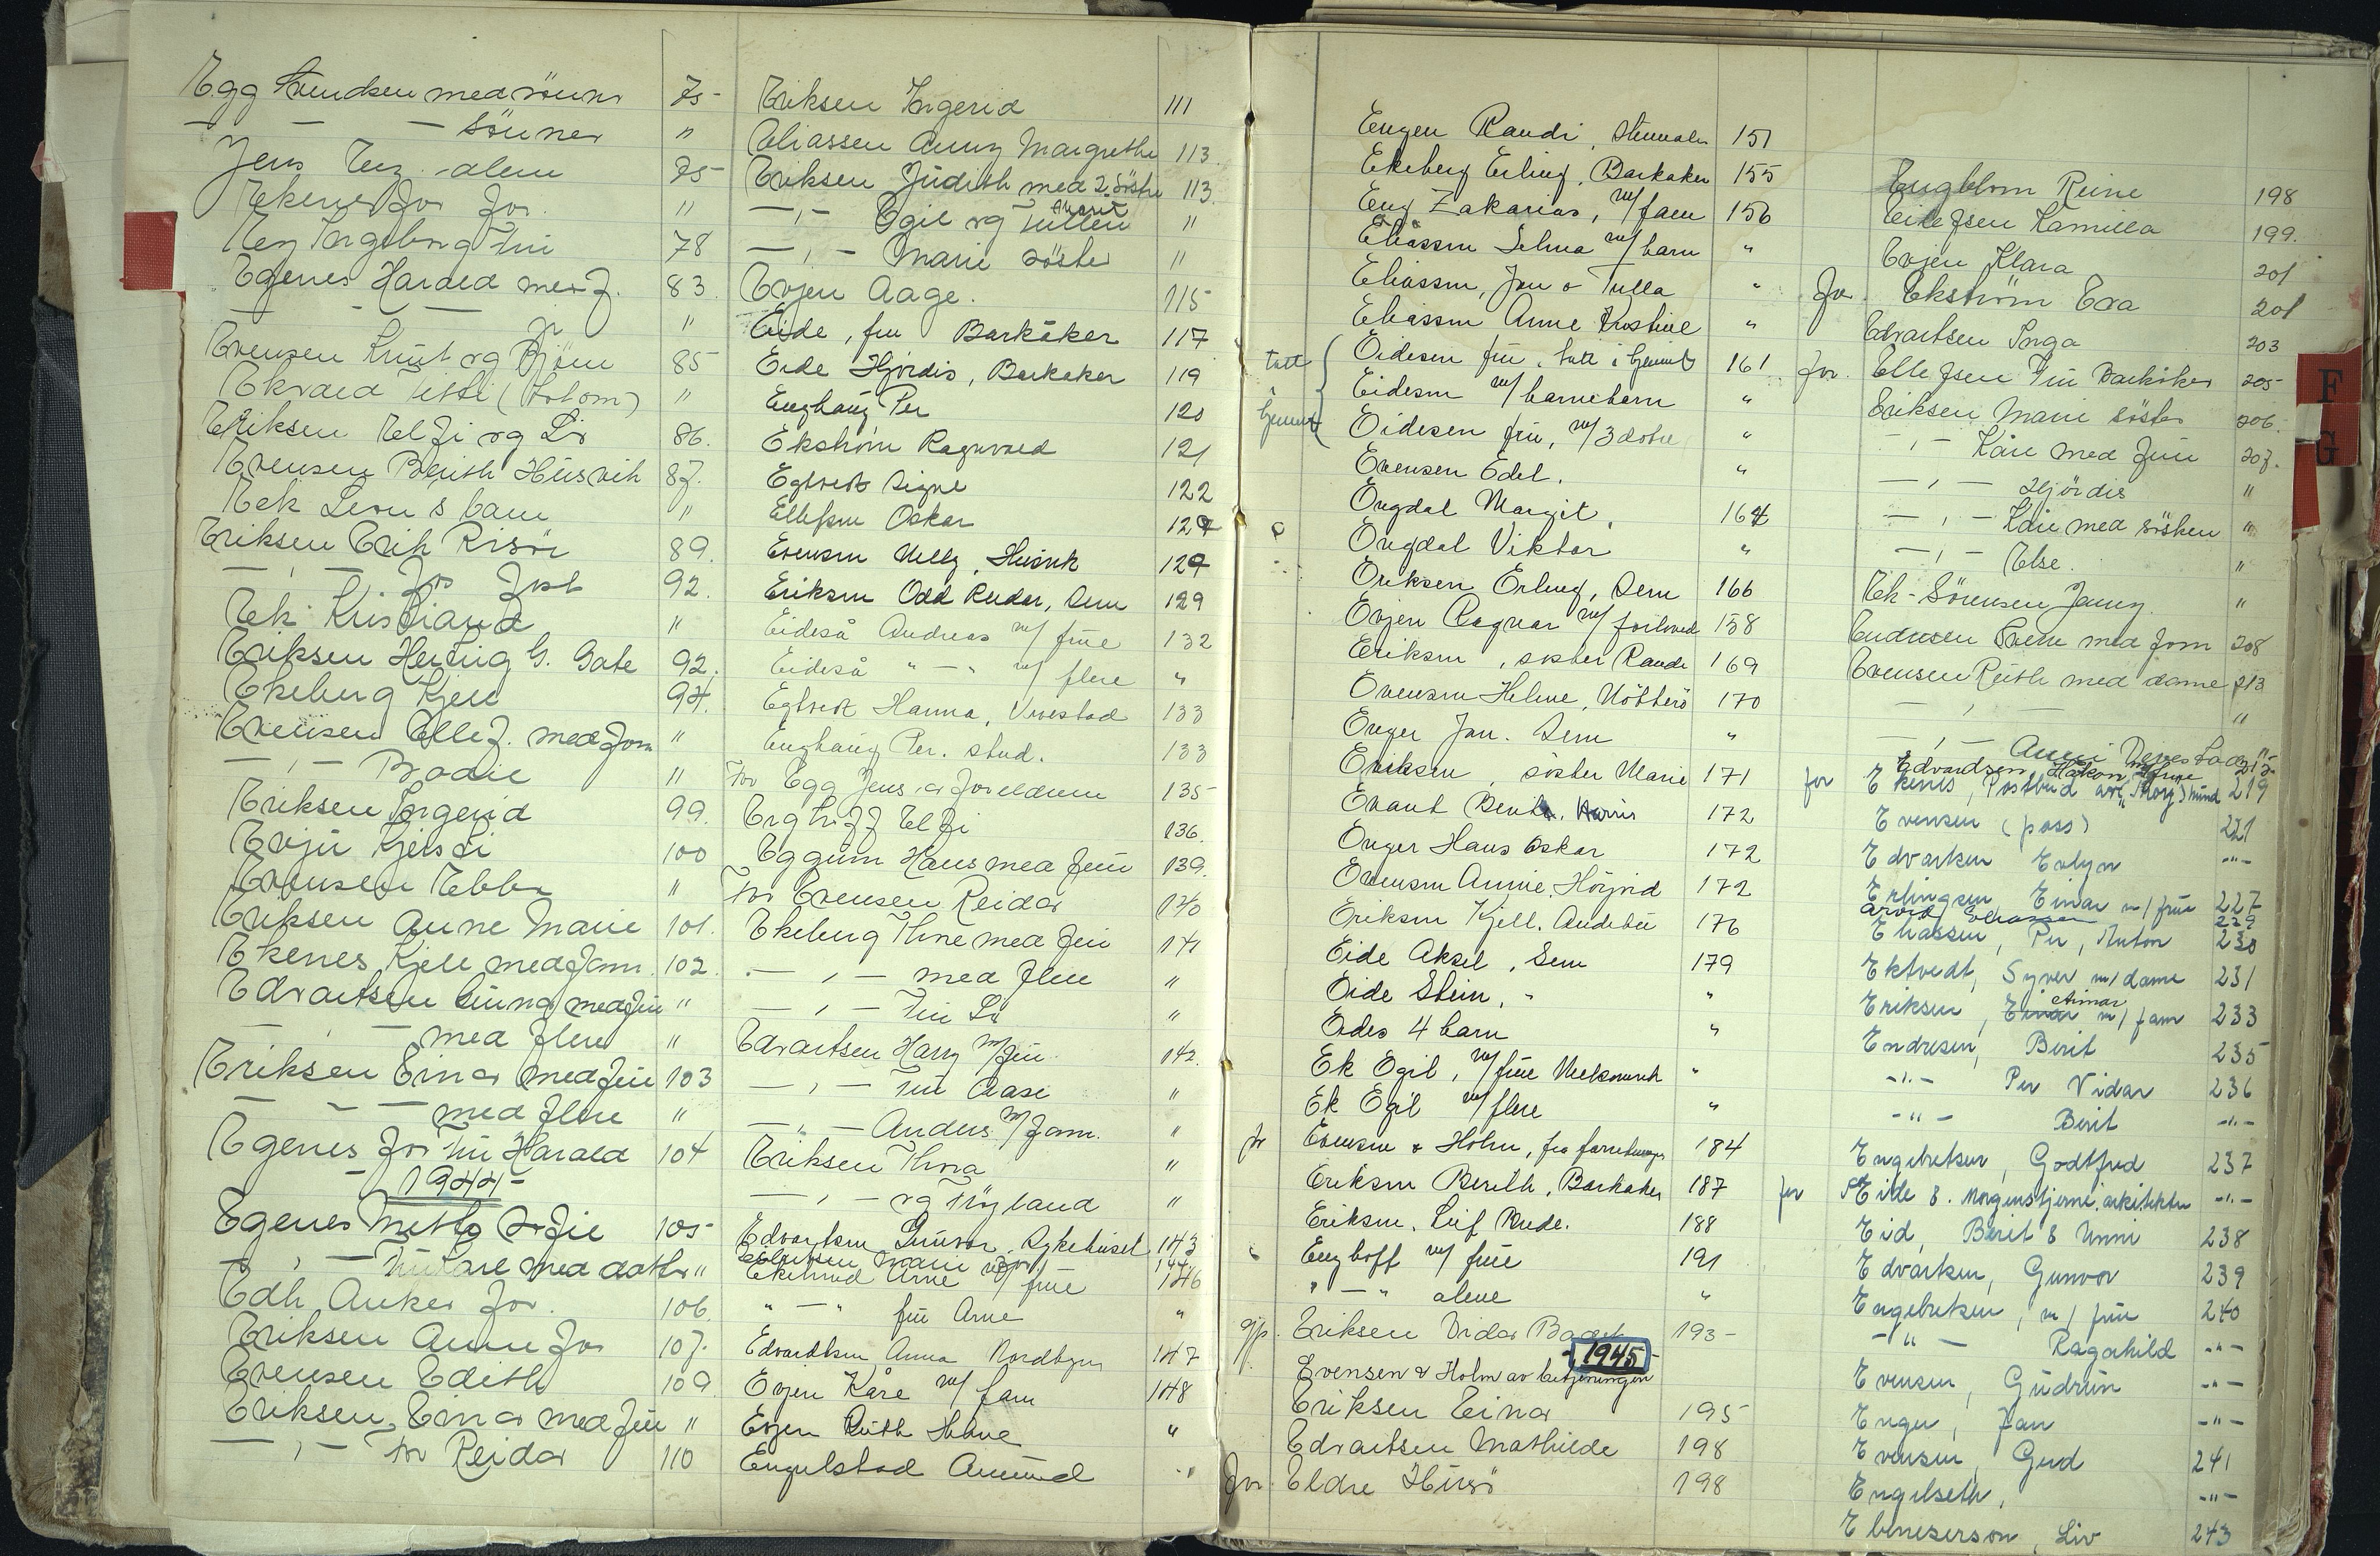 Egg Svendsen med sönner 75
— — — Sönner "
Jens Eeg. alene 75
Ekenes for Jor. "
Eeg Ingeborg Fru 78
Egenes Harald med f. 83.
— — — Jr "
Evensen Knut og Björn 85
Ekvald Tisti (Solom) "
Eriksen Elfi og Liv 86.
Evensen Berith Husvik 87.
Eek Leon's barn "
Eriksen Erik Risör 89.
— " — Jos Jost 92.
Eek Kristian "
Eriksen Henrig G. Gate 92.
Ekeberg Kjell 94.
Evensen Ellef. med fam "
— " — Bodil "
Eriksen Ingerid 99.
Evju Kjersti 100
Evensen Ebba "
Eriksen Anne Marie 101.
Ekenes Kjell med fam. 102.
Edvartsen Gunnar med fru "
— " — med flere "
Eriksen Einar med fru 103
— — — med flere "
Egenes for Fru Harald 104
— 1944 —
Egenes Mette Sofie 105
— " — Fru Kare med datter "
Edh Anker for. 106.
Eriksen Anne for 107.
Evensen Edith 109
Eriksen, Einar med fru "
— " — for Reidar 110
Eriksen Ingerid 111
Eliassen Anny Margrethe 113.
Eriksen Judith med 2 söstre 113.
— " — Egil og Tullen "
— " — Marie söster "
Evjen Aage. 115
Eide, fru Barkåker 117
Eide Hjördis, Barkaker 119
Enghaug Per 120
Ekström Ragnvald 121
Egtvedt Signe 122
Ellefsen Oskar 124
Evensen Nelly, Husvik 129
Eriksen Odd Reidar, Sem 129
Eideså Andreas m/ frue 132
Eideså " — " m/ flere "
Egtvedt Hanna, Vivestad 133
Enghaug Per. stud. 133
For Egg Jens av foreldrene 135
Ergtriff Elfi 136.
Eggum Hans med fru 139.
For Evensen Reidar 140
Ekeberg Thine med fru 141
— " — med flere "
— " — Fru Liv "
Edvartsen Harry m/fru 142.
— " — Fru Aase "
— " — Anders m/fam. "
Eriksen Thora "
— " — og Tröyland "
Edvartsen Gunvor, Sykehuset 143
Edvartsen Marie 144
Ekerud Arne m/ frue 146
" — " fru Arne "
Edvardtsen Anna Nordbyen 147
Evjen Kåre m/ fam 148
Evjen Ruth Helene "
Engelstad Amund "
Engen Randi, Stenmalen 151
Ekeberg Erling, Barkaker 155
Eng Zakarias, m/ fam 156
Eliassen Selma m/ barn "
Eliassen, Jan o Tulla "
Eliassen Anne Kristine "
tatt Eidesen fru, tatt i hjemmet 161
hjemmet Eidesen m/ barnebarn "
Eidesen fru, m/ 3 dotre "
Evensen Edel. "
Engdal Margit, 164
Engdal Viktor "
Eriksen Erling, Sem 166
Evjen Ragnar m/ forlovede 158
Eriksen, söster Randi 169
Evensen Helene, Nötterö 170
Enger Jan. Sem "
Eriksen, söster Marie 171
Evant Berit. 172
Enger Hans Oskar 172
Evensen Annie, Höyjord 172
Eriksen Kjell. Andebu 176
Eide Aksel, Sem 179
Eide Stein, " "
Eides 4 barn "
Ek Egil, m/ frue "
Ek Egil m/ flere "
for Evensen & Holm, fra forretningen 184
Eriksen Berith, Barkaker 187
Eriksen. Leif Rude. 188
Enghoff m/ frue 191
" — " alene "
Eriksen Vidar 193
— 1945 —
Evensen & Holm av betjeningen
Eriksen Einar 195
Edvartsen Mathilde 198
for Eldre Husö 198
Engblom Reine 198
Eilefsen Kamilla 199.
Evjen Klara 201
for Ekström Eva 201
Edvartsen Inga 203
for. Ellefsen Fru Barkåker 205
Eriksen Marie söster 206.
— " — Kåre med fru 207.
— " — Hjördis "
— " — Kåre med söskon "
— " — Else. "
Ek-Sörensen Jenny. "
Endresen Svein med fam 208
Evensen Ruth med dame 213
— " — "
— " — Anni 215
Edvardsen Håkon m/ frue
for Ekenes, Postbud 219
Evensen (pass) 221
Edvartsen Evelyn -"-
Erlingsen Einar m/ frue 227
Arvid Eliassen 229
Eliassen, Per, Anton 230
Ektvedt, Syver m/ dame 231
Eriksen, Einar m/ fam 233
Endresen, Berit 235
-"- Per Vidar 236
-"- Berit -"-
Engebretsen, Godtfred 237
for Eide & Morgenstjerne, arkitekter -"-
Eid, Berit & Unni 238
Edvartsen, Gunvor 239
Engebretsen, m/ frue 240
-"- Ragnhild -"-
Evensen, Gudrun -"-
Enger, Jan -"-
Evensen, Gerd 241
Engelseth, -"-
Ebeneserson, Liv 243
F
G